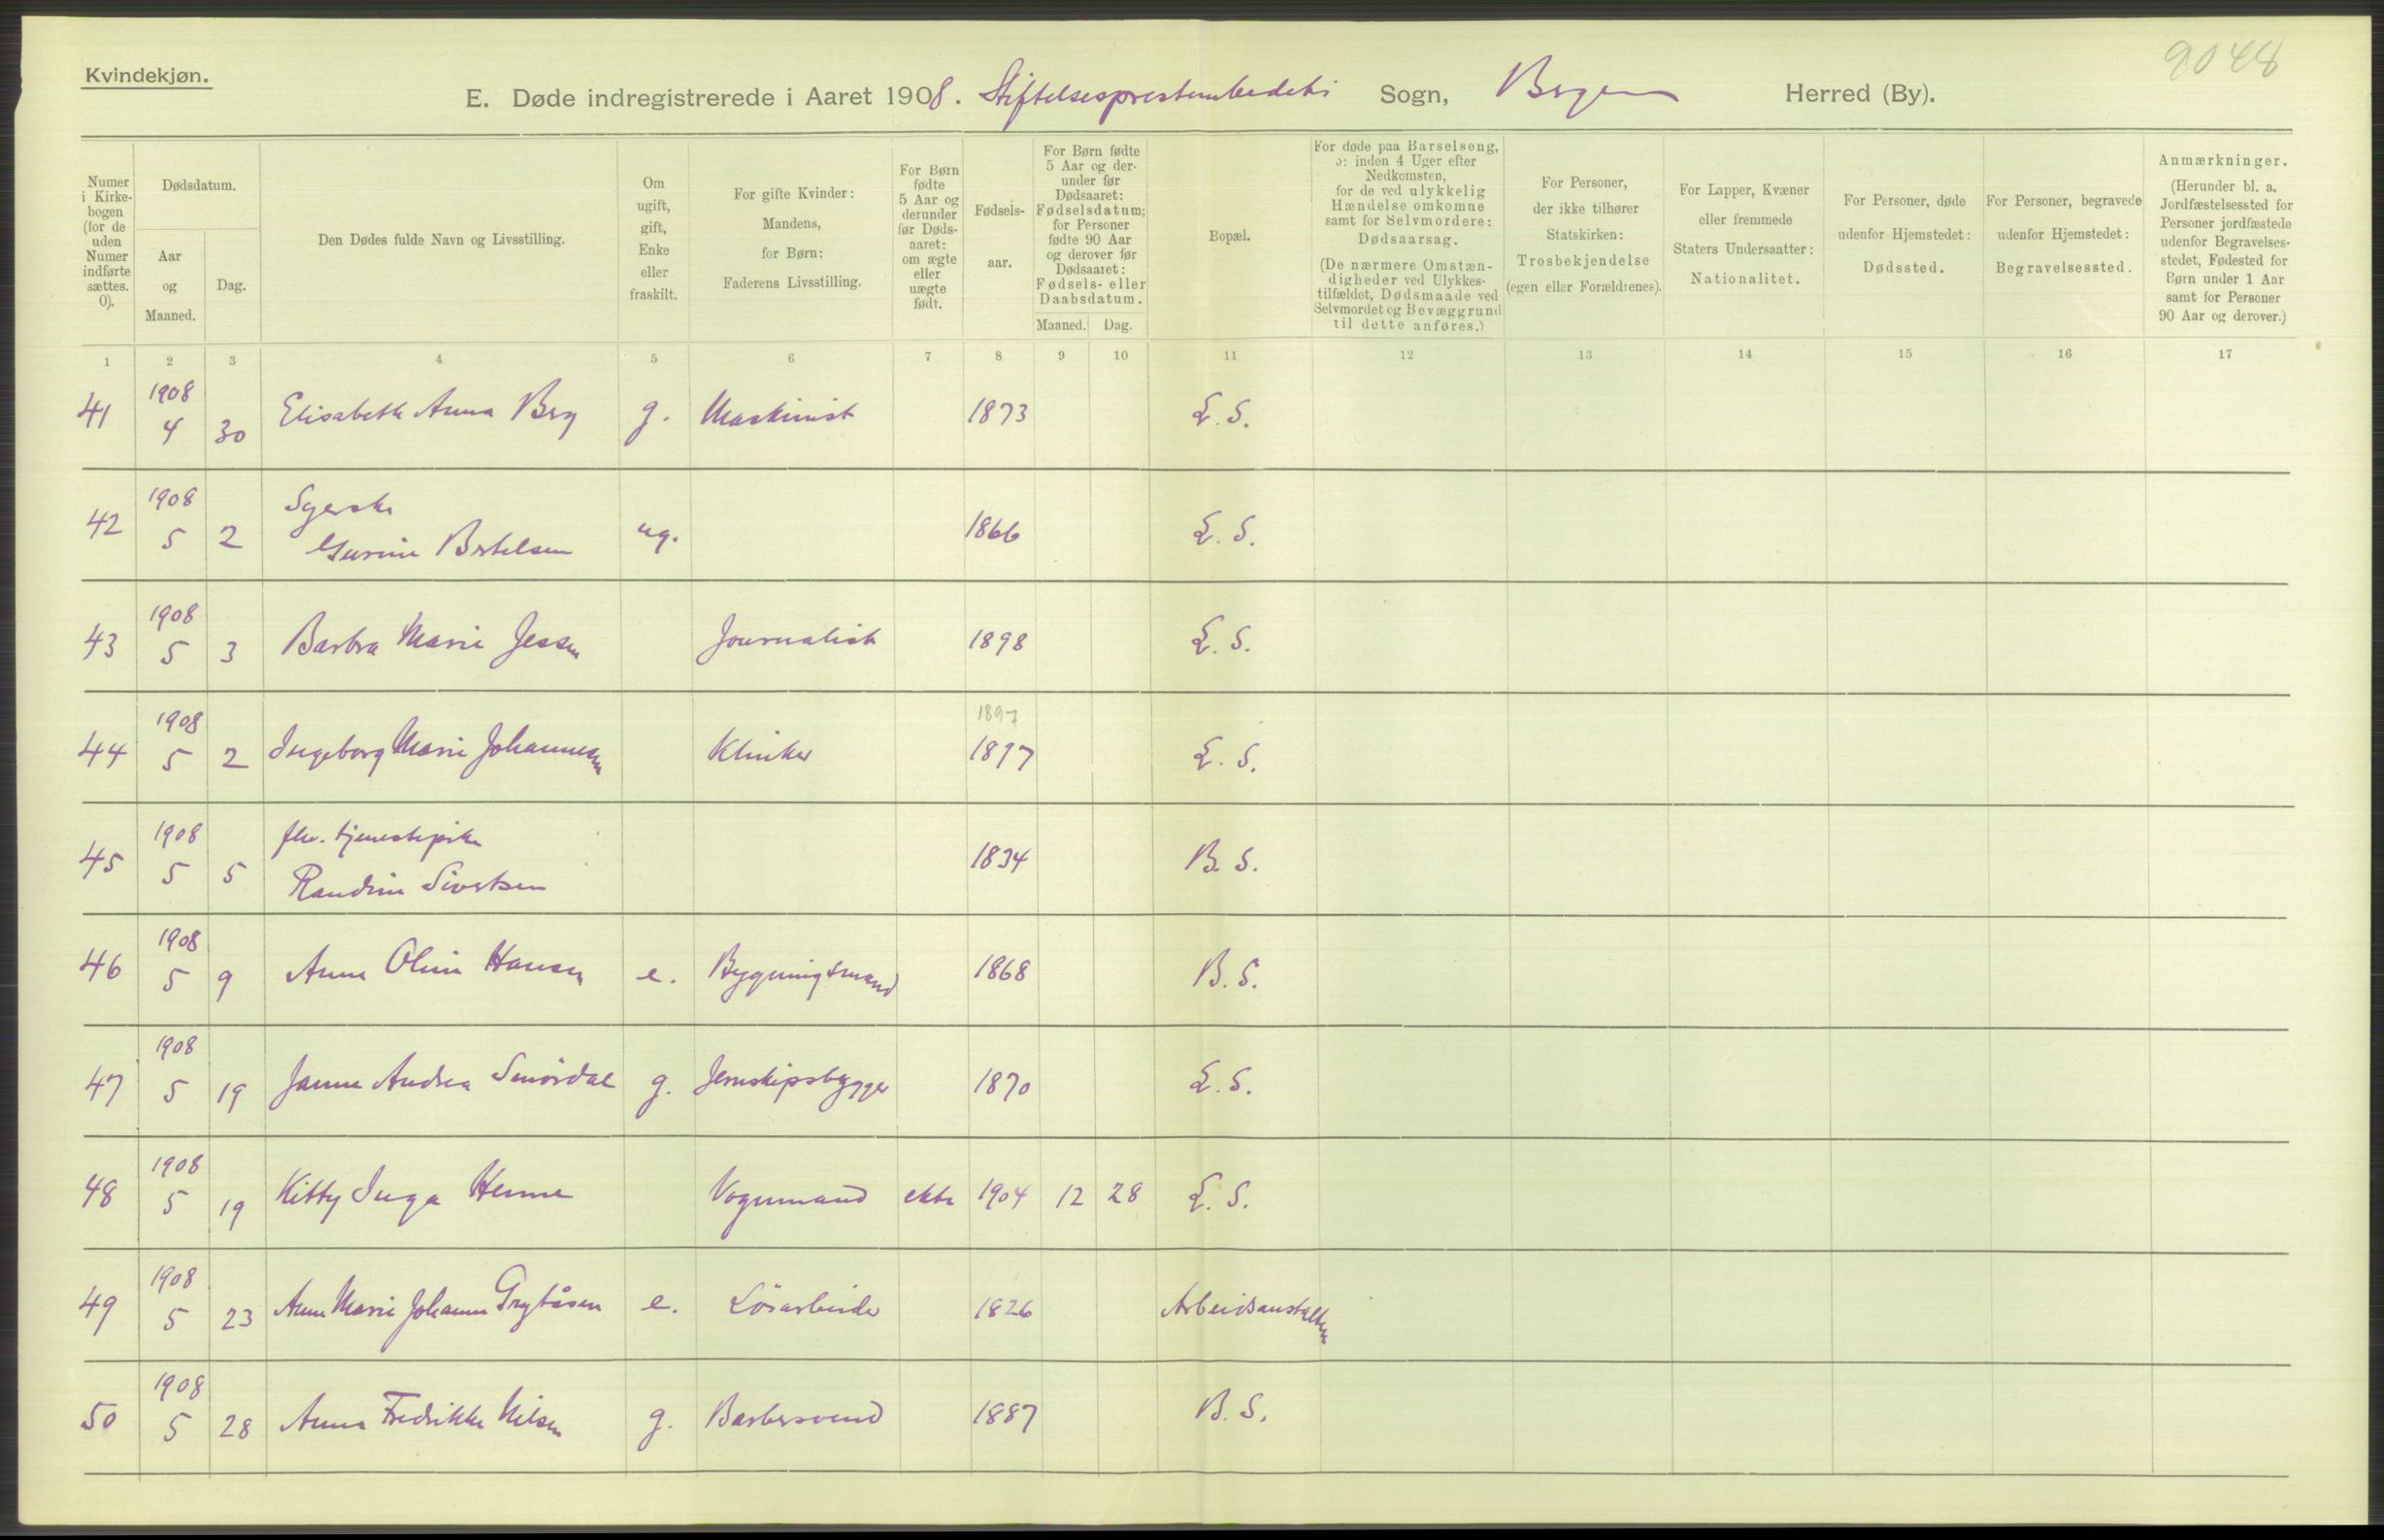 Kvindekjøn.
9048
E. Døde indregistrerede i Aaret 1908. Stiftelsesprestembedets Sogn, Bergen Herred (By).
Numer i Kirkebogen (for de uden Numer indførte sættes. 0).
Dødsdatum.
Aar og Maaned.
Dag.
Den Dødes fulde Navn og Livsstilling.
Om ugift, gift, Enke eller fraskilt.
For gifte Kvinder: Mandens, for Børn: Faderens Livsstilling.
For Børn fødte 5 Aar og derunder før Dødsaaret: om ægte eller uægte født.
Fødselsaar.
For Børn fødte 5 Aar og derunder før Dødsaaret: Fødselsdatum; for Personer fødte 90 Aar og derover før Dødsaaret: Fødsels- eller Daabsdatum.
Maaned. Dag.
Bopæl.
For døde paa Barselseng, ɔ: inden 4 Uger efter Nedkomsten, for de ved ulykkelig Hændelse omkomne samt for Selvmordere: Dødsaarsag. (De nærmere Omstændigheder ved Ulykkestilfældet, Dødsmaade ved Selvmordet og Bevæggrund til dette anføres.)
For Personer, der ikke tilhører Statskirken: Trosbekjendelse (egen eller Forældrenes).
For Lapper, Kvæner eller fremmede Staters Undersaatter: Nationalitet.
For Personer, døde udenfor Hjemstedet: Dødssted.
For Personer, begravede udenfor Hjemstedet: Begravelsessted.
Anmærkninger. (Herunder bl. a. Jordfæstelsessted for Personer jordfæstede udenfor Begravelsesstedet, Fødested for Børn under 1 Aar samt for Personer 90 Aar og derover.)
1 2 3 4 5 6 7 8 9 10 11 12 13 14 15 16 17
41 1908 4 30 Elisabeth Anna Berg g. Maskinist 1873 L. S.
42 1908 5 2 Syerske
Gurine Bertelsen ug. 1866 L. S.
43 1908 5 3 Barbra Marie Jessen Journalist 1898 L. S.
1897
44 1908 5 2 Ingeborg Marie Johannesen Klinker 1897 L. S.
45 1908 5 5 fhv. tjenestepike
Randine Sivertsen 1834 B. S.
46 1908 5 9 Anne Oline Hansen e. Bygningsmand 1868 B. S.
47 1908 5 19 Janna Andrea Smördal g. Jernskipsbygger 1870 L. S.
48 1908 5 19 Kitty Inga Henne Vognmand ekte 1904 12 28 L. S.
49 1908 5 23 Anne Marie Johanne Grytåsen e. Lösarbeider 1826 Arbeidsanstalten
50 1908 5 28 Anna Fredrikke Nilsen g. Barbersvend 1887 B. S.